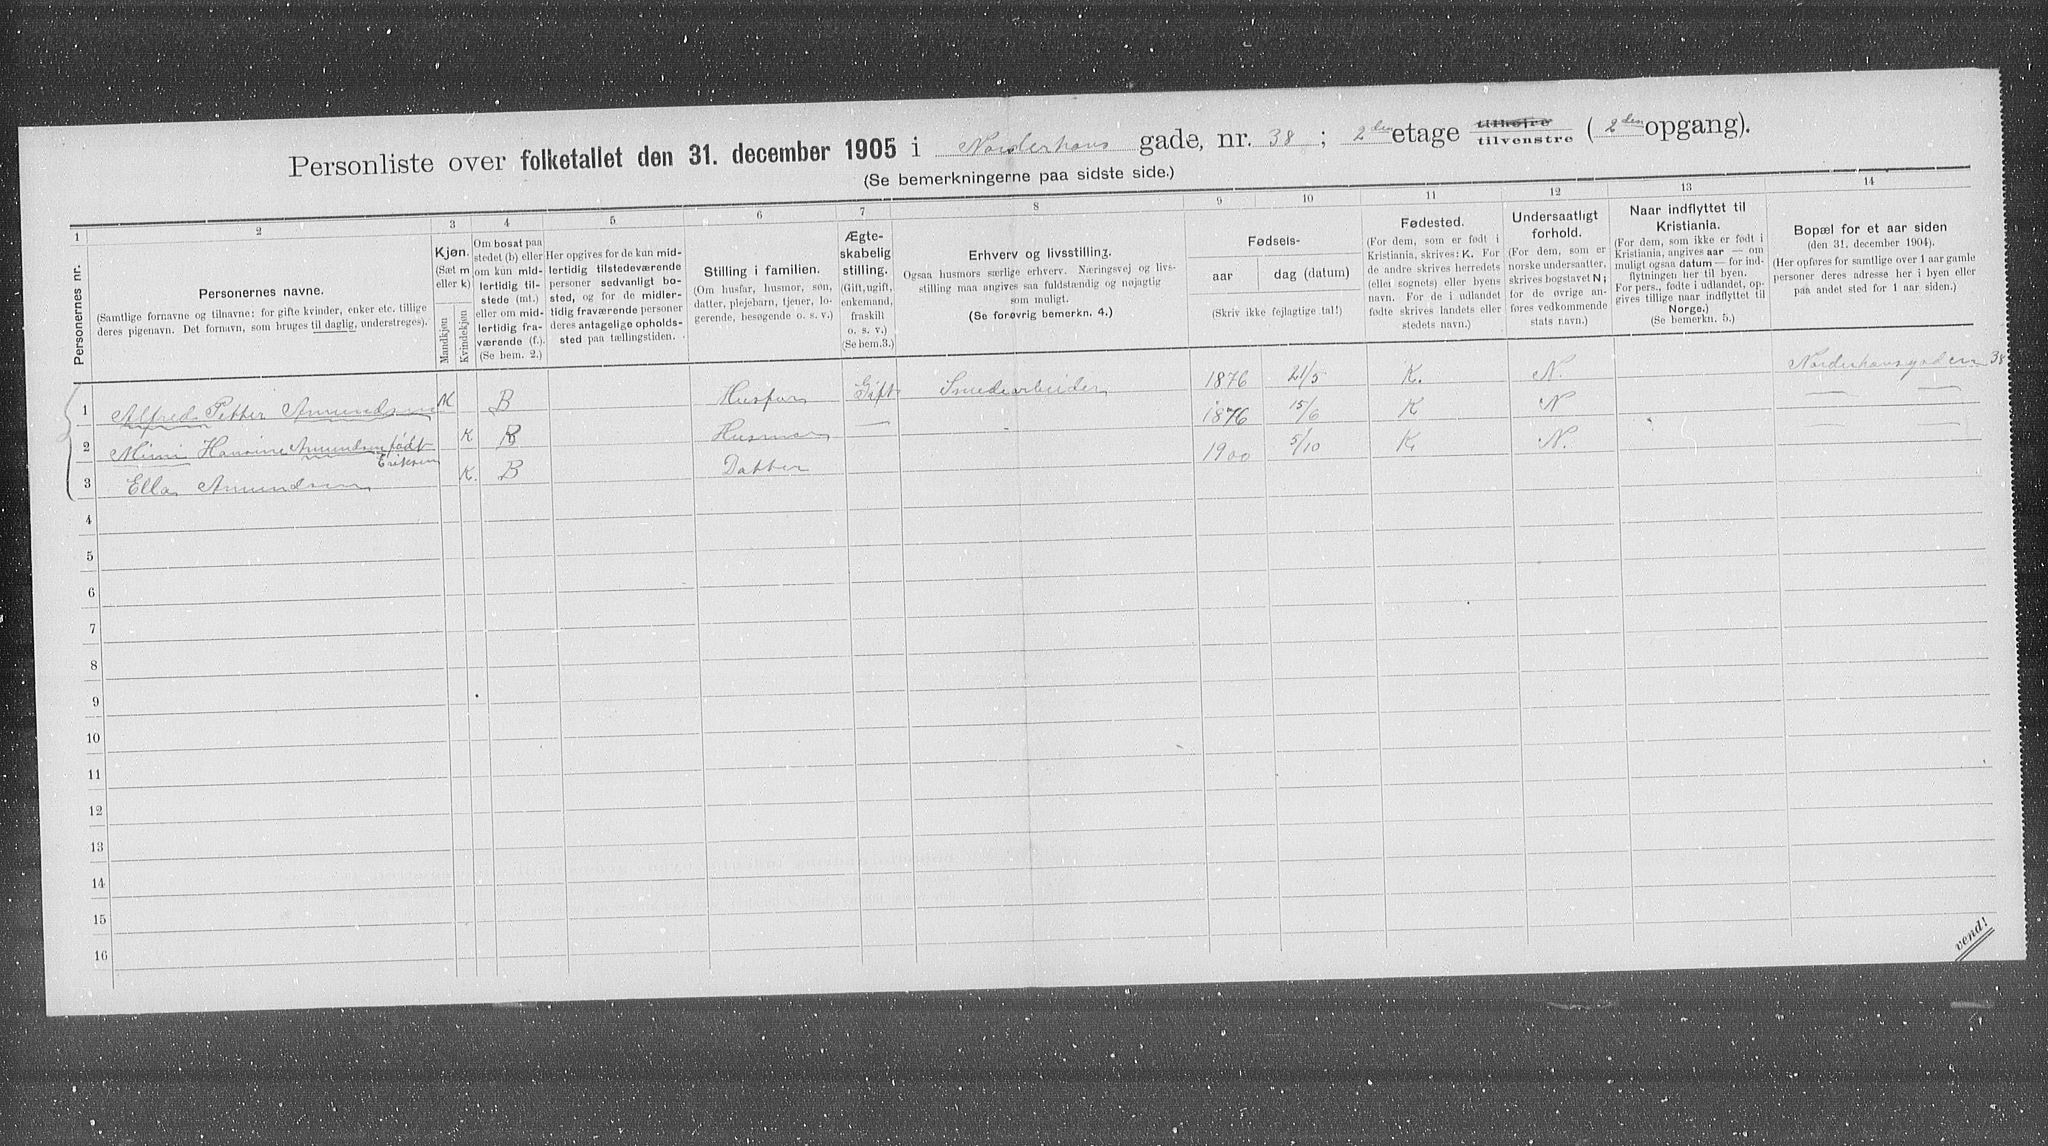 Personliste over folketallet den 31. december 1905 i Norderhovs gade, nr. 38 ; 2den etage tilhøire tilvenstre ( 2den opgang).
(Se bemerkningerne paa sidste side.)
1 2 3 4 5 6 7 8 9 10 11 12 13 14
Personernes nr.
Personernes navne.
(Samtlige fornavne og tilnavne; for gifte kvinder, enker etc. tillige
deres pigenavn. Det fornavn, som bruges til daglig, understreges).
Kjøn.
(Sæt m
eller k)
Mandkjøn
Kvindekjøn
Om bosat paa
stedet (b) eller
om kun mid-
lertidig til-
stede (mt.)
eller om mid-
lertidig fra-
værende (f.).
(Se bem. 2.)
Her opgives for de kun mid-
lertidig tilstedeværende
personer sedvanligt bo-
sted, og for de midler-
tidig fraværende personer
deres antagelige opholds-
sted paa tællingstiden.
Stilling i familien.
(Om husfar, husmor, søn,
datter, plejebarn, tjener, lo-
gerende, besøgende o. s. v.)
Ægte-
skabelig
stilling.
(Gift, ugift,
enkemand,
fraskilt
o. s. v.)
(Se bem.3.)
Erhverv og livsstilling.
Ogsaa husmors særlige erhverv. Næringsvej og livs-
stilling maa angives saa fuldstændig og nøjagtig
som muligt.
(Se forøvrig bemerkn. 4.)
Fødsels-
aar dag (datum)
(Skriv ikke fejlagtige tal!)
Fødested.
(For dem, som er født i
Kristiania, skrives: K. For
de andre skrives herredets
(ellet sognets) eller byens
navn. For de i udlandet
fødte skrives landets eller
stedets navn.)
Undersaatligt
forhold.
(For dem, som er
norske undersaatter,
skrives bogstavet N;
for de øvrige an-
føres vedkommende
stats navn.)
Naar indflyttet til
Kristiania.
(For dem, som ikke er født i
Kristiania, angives aar — om
muligt ogsaa datum — for ind-
flytningen her til byen.
For pers., fødte i udlandet, op-
gives tillige naar indflyttet til
Norge.)
(Se bemerkn. 5.)
Bopæl for et aar siden
(den 31. december 1904).
(Her opføres for samtlige over 1 aar gamle
personer deres adresse her i byen eller
paa andet sted for 1 aar siden.)
1 Alfred Petter Amundsen M B Husfar Gift Smedearbeider 1876 21/5 K. N. Norderhovsgaden 38
2 Mimi Hansine Amundsen født Eriksen K B Husmor — 1876 15/6 K N — —
3 Ella Amundsen K. B Datter 1900 5/10 K. N. — —
4
5
6
7
8
9
10
11
12
13
14
15
16
vend!